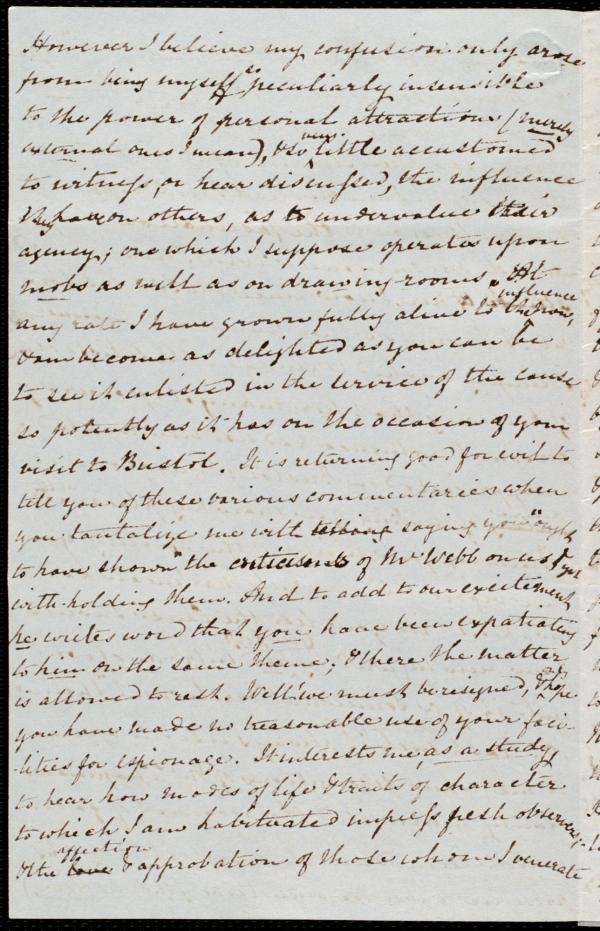 However I believe my confusion only arose
from being myself so peculiarly insensible
to the power of personal attractions (merely
external ones I mean), & so very little accustomed
to witness, or hear discussed, the influence
they have on others, as to undervalue their
agency; one which I suppose operates upon
mobs as well as on drawing-rooms. At
any rate I have grown fully alive to influence
& am become as delighted as you can be
to see it enlisted in the service of the cause
so potently as it has on the occasion of your
visit to Bristol. It is returning good for evil to
tell you of these various commentaries when
you tantalize me with telling saying you "ought
to have shown" the criticisms of Mr Webb on us & yet
with-holding them. And to add to our excitement
he writes word that you have been expatiating
to him on the same theme; & there the matter
is allowed to rest. Well! we must be resigned, and hope
you have made no treasonable use of your faci-
lities for espionage. It interests me, as a study,
to hear how modes of life & traits of character
to which I am habituated impress fresh observers;
& the love affection & approbation of those whom I venerate